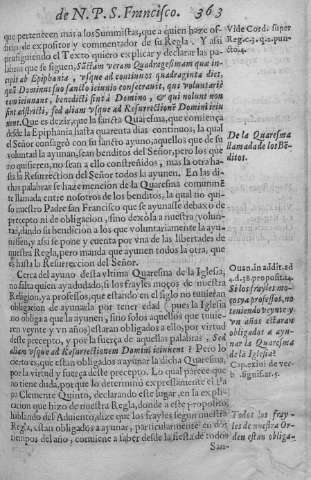 de N. P. S. Francisco. 363
que pertenecen mas a los Summistas, que a quien haze ofi-
cio de expositor y commentador de su Regla. Y assi
prosiguiendo el Texto quiero explicar y declarar las pa-
labras que se siguen, Sāctam veram Quadragesimam qua in-
cipit ab Epiphania, vsque ad continuos quadraginta dies,
quā Dominus suo sancto ieiunio consecrauit, qui voluntarie
ieiunant, benedicti sint à Domino, & qui nolunt non
sint astricti, sed aliam vsque ad Resurrectionē Domini ieiu-
nent. Que es dezir, que la sancta Quaresma, que comiença
desde la Epiphania hasta quarenta dias continuos, la qual
el Señor consagrò con su sancto ayuno, aquellos que de su
voluntad la ayunan, sean benditos del Señor, pero los que
no quisieren, no sean a ello constreñidos, mas la otra ha-
sta la Resurrection del Señor todos la ayunen. En las di-
chas palabras se haze mencion de la Quaresma cōmunmē
te llamada entre nosotros de los benditos, la qual no qui-
so nuestro Padre san Francisco que se ayunasse debaxo de
precepto ni de obligacion, sino dexòla a nuestra volun-
tad, dando su bendicion a los que voluntariamente la ayu-
nassen, y assi se pone y cuenta por vna de las libertades de
nuestra Regla, pero manda que ayunen todos la otra, que
es hasta la Resurreccion del Señor.
Cerca del ayuno desta vltima Quaresma de la Iglesia,
no falta quien aya dudado, si los frayles moços de nuestra
Religion, ya professos, que estando en el siglo no tuuieran
obligacion de ayunarla por tener edad (pues la Iglesia
no obliga que la ayunen, sino solos aquellos que tuuie-
ren veynte y vn años) estaran obligados a ello, por virtud
deste precepto, y por la fuerça de aquellas palabras, Sed
aliam vsque ad Resurrectionem Domini ieiunent? Pero lo
cierto es, que estan obligados a ayunar la dicha Quaresma,
por la virtud y fuerça deste precepto. Lo qual parece que
no tiene duda, por que lo determinò expressamente el Pa
pa Clemente Quinto, declarando este lugar, en la expli-
cacion que hizo de nuestra Regla, donde a este proposito,
hablando del Aduiento, dize que los frayles segun nuestra
Regla, estan obligados a ayunar, particularmente en dos
tiempos del año, conuiene a saber desde la fiesta de todos
San-
Vide Cord. super
Reg. c. 3. q. 2. pun-
cto. 4.
De la Quaresma
llamada de los Bē-
ditos.
Si los frayles mo-
ços ya professos, no
teniendo veynte y
vn años estaran
obligados a ayu-
nar la Quaresma
de la Iglesia?
Cap. exiui de ver-
b. signific. 5.
Todos los fray-
les de nuestra Or-
den estan obliga-